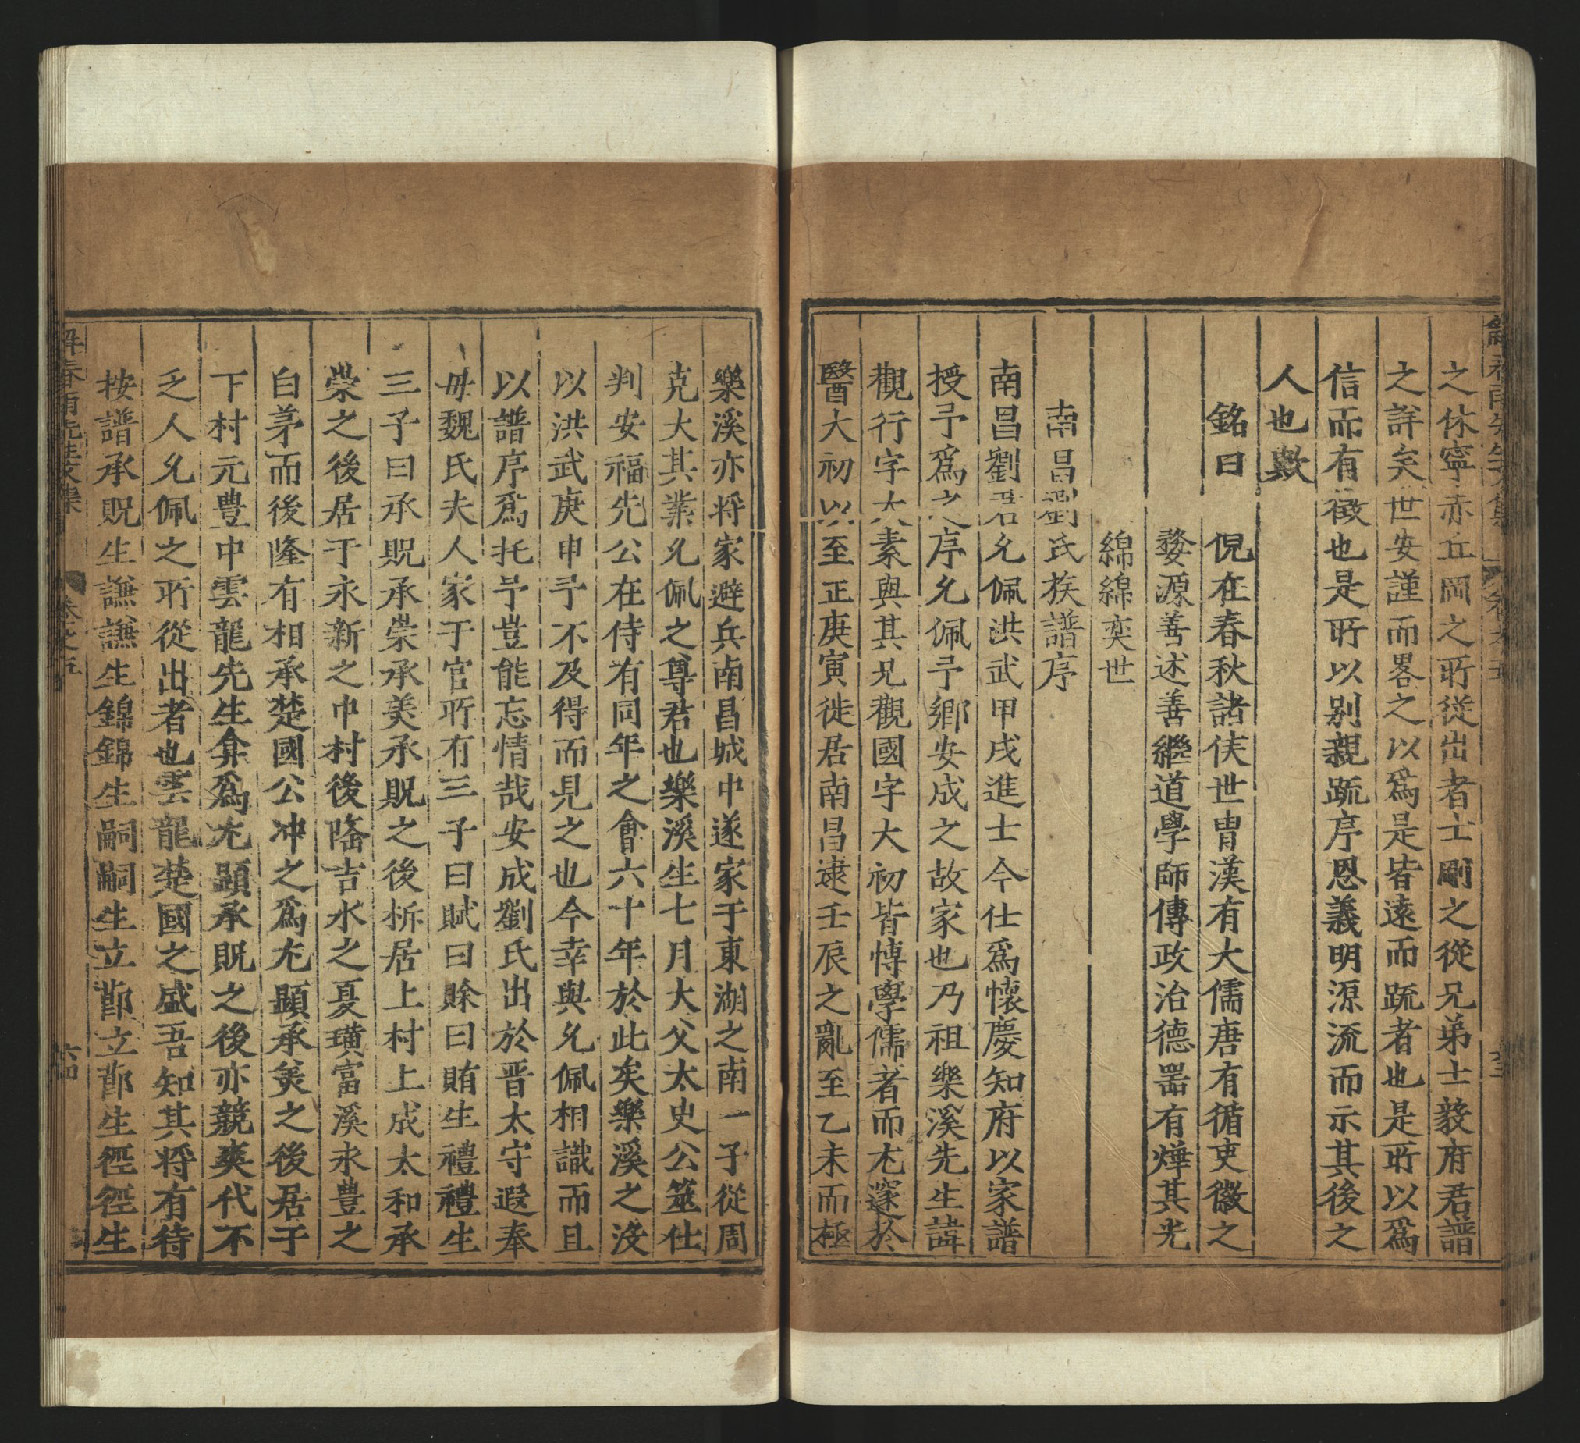 之休寧赤丘岡之所從出者士剛之從兄弟士毅府君譜
之詳矣世安謹而畧之以爲是皆遠而䟽者也是所以爲
信而有徵也是所以别親䟽序恩義明源流而示其後之
人也歟
銘曰 倪在春秋諸侯世胄漢有大儒唐有循吏徽之
婺源善述善繼道學師傳政治德器有燁其光
綿綿奕世
南昌劉氏族譜序
南昌劉君允佩洪武甲戌進士今仕爲懷慶知府以家譜
授予爲之序允佩予鄉安成之故家也乃祖樂溪先生諱
觀行字大素與其兄觀國字大初皆博學儒者而尤邃於
醫大初以至正庚寅徙居南昌逮壬辰之亂至乙未而極
樂溪亦將家避兵南昌城中遂家于東湖之南一子從周
克大其業允佩之尊君也樂溪生七月大父太史公筮仕
判安福先公在侍有同年之會六十年於此矣樂溪之没
以洪武庚申予不及得而見之也今幸與允佩相識而且
以譜序爲托予豈能忘情哉安成劉氏出於晋太守遐奉
母魏氏夫人家于官所有三子曰賦曰賒曰賄生禮禮生
三子曰承貺承崇承羙承貺之後析居上村上成太和承
崇之後居于永新之中村後隆吉水之夏璜富溪永豊之
白茅而後隆有相承楚國公冲之爲尤顯承羙之後居于
下村元豊中雲龍先生弇爲尤顯承貺之後亦競爽代不
乏人允佩之所從出者也雲龍楚國之盛吾知其將有待
按譜承貺生謙謙生錦錦生嗣嗣生立鄮立鄮生徑徑生
解春雨先生文集 卷之五 六四